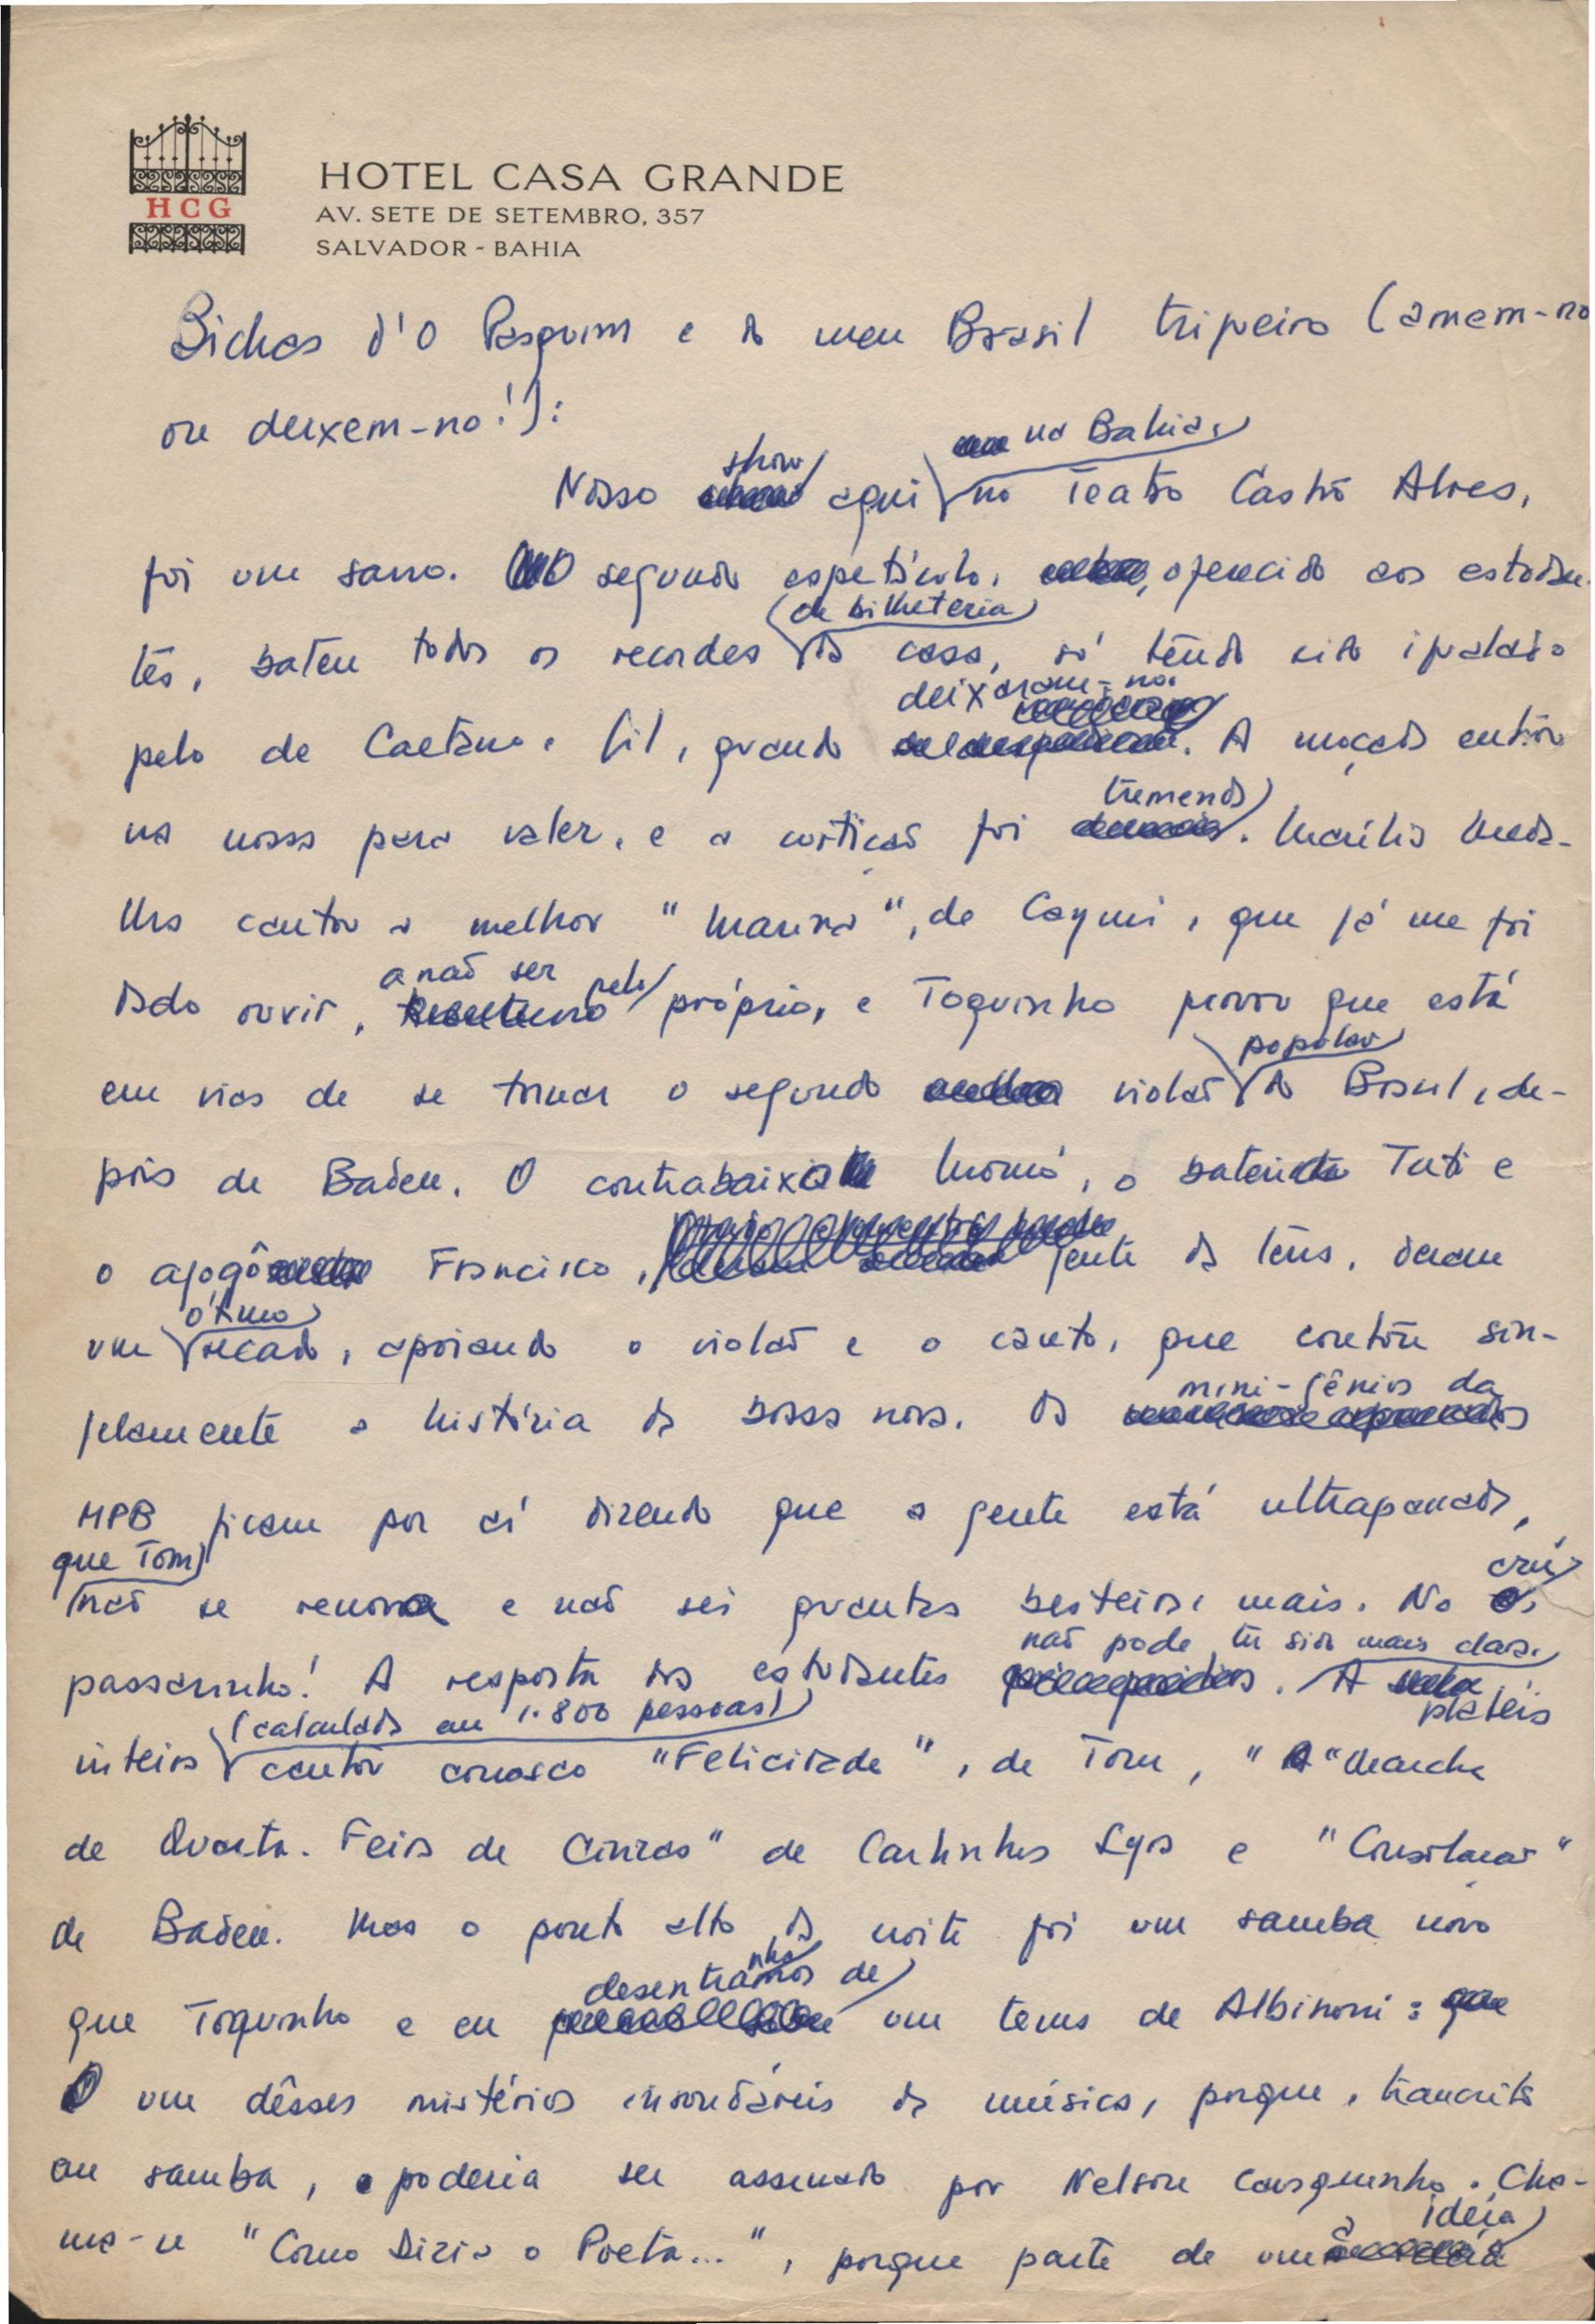 HCG
HOTEL CASA GRANDE
AV. SETE DE SETEMBRO, 357
SALVADOR - BAHIA
Bichos d'O Pasquim e do meu Brasil tripeiro (amem-no
ou deixem-no!):
na Bahia,
show
Nosso aqui no Teatro Castro Alves,
foi um sarro. O segundo espetáculo, oferecido aos estudan-
de bilheteria
tes, bateu todos os recordes da casa, só tendo sido igualado
deixaram-nos
pelo de Caetano e Gil, quando. A moçada entrou
tremenda
na nossa para valer, e a curtição foi. Marília Meda-
lha cantou a melhor "Marina", de Caymi, que já me foi
a não ser pelo
dado ouvir, próprio, e Toquinho provou que está
popular
em vias de se tornar o segundo violão do Brasil, de-
pois de Baden. O contrabaixo Momó, o bateria Tuti e
o agogô Francisco, gente da terra, deram
ótimo
um recado, apoiando o violão e o canto, que contou sin-
mini-gênios da
gelamente a história da bossa nova. Os
MPB ficam por aí dizendo que a gente está ultrapassada,
que Tom
não se renova e não sei quantas besteiras mais. No
crú,
passarinho! A resposta dos estudantes
não pode ter sido mais clara.
. A platéia
(calculada em 1.800 pessoas)
inteira cantou conosco "Felicidade", de Tom, "A "Marcha
de Quarta-Feira de Cinzas" de Carlinhos Lyra e "Consolação"
de Baden. Mas o ponto alto da noite foi um samba novo
desentranhamos de
que Toquinho e eu um tema de Albinoni:
O um dêsses mistérios insondáveis da música, porque, transcrito
em samba, poderia ser assinado por Nelson Cavaquinho. Cha-
idéia
ma-se "Como Dizia o Poeta...", porque parte de uma